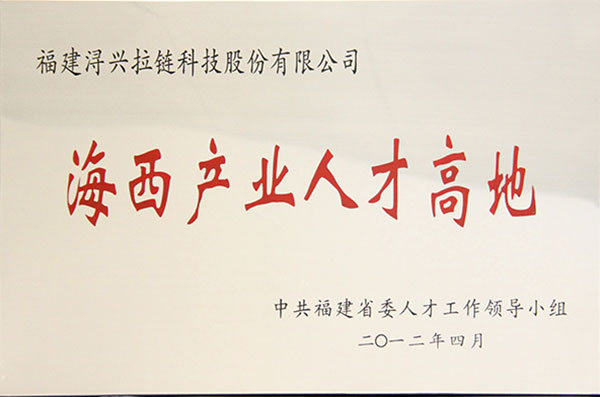 福建浔兴拉链科技股份有限公司
海西产业人才高地
中共福建省委人才工作领导小组
二〇一二年四月